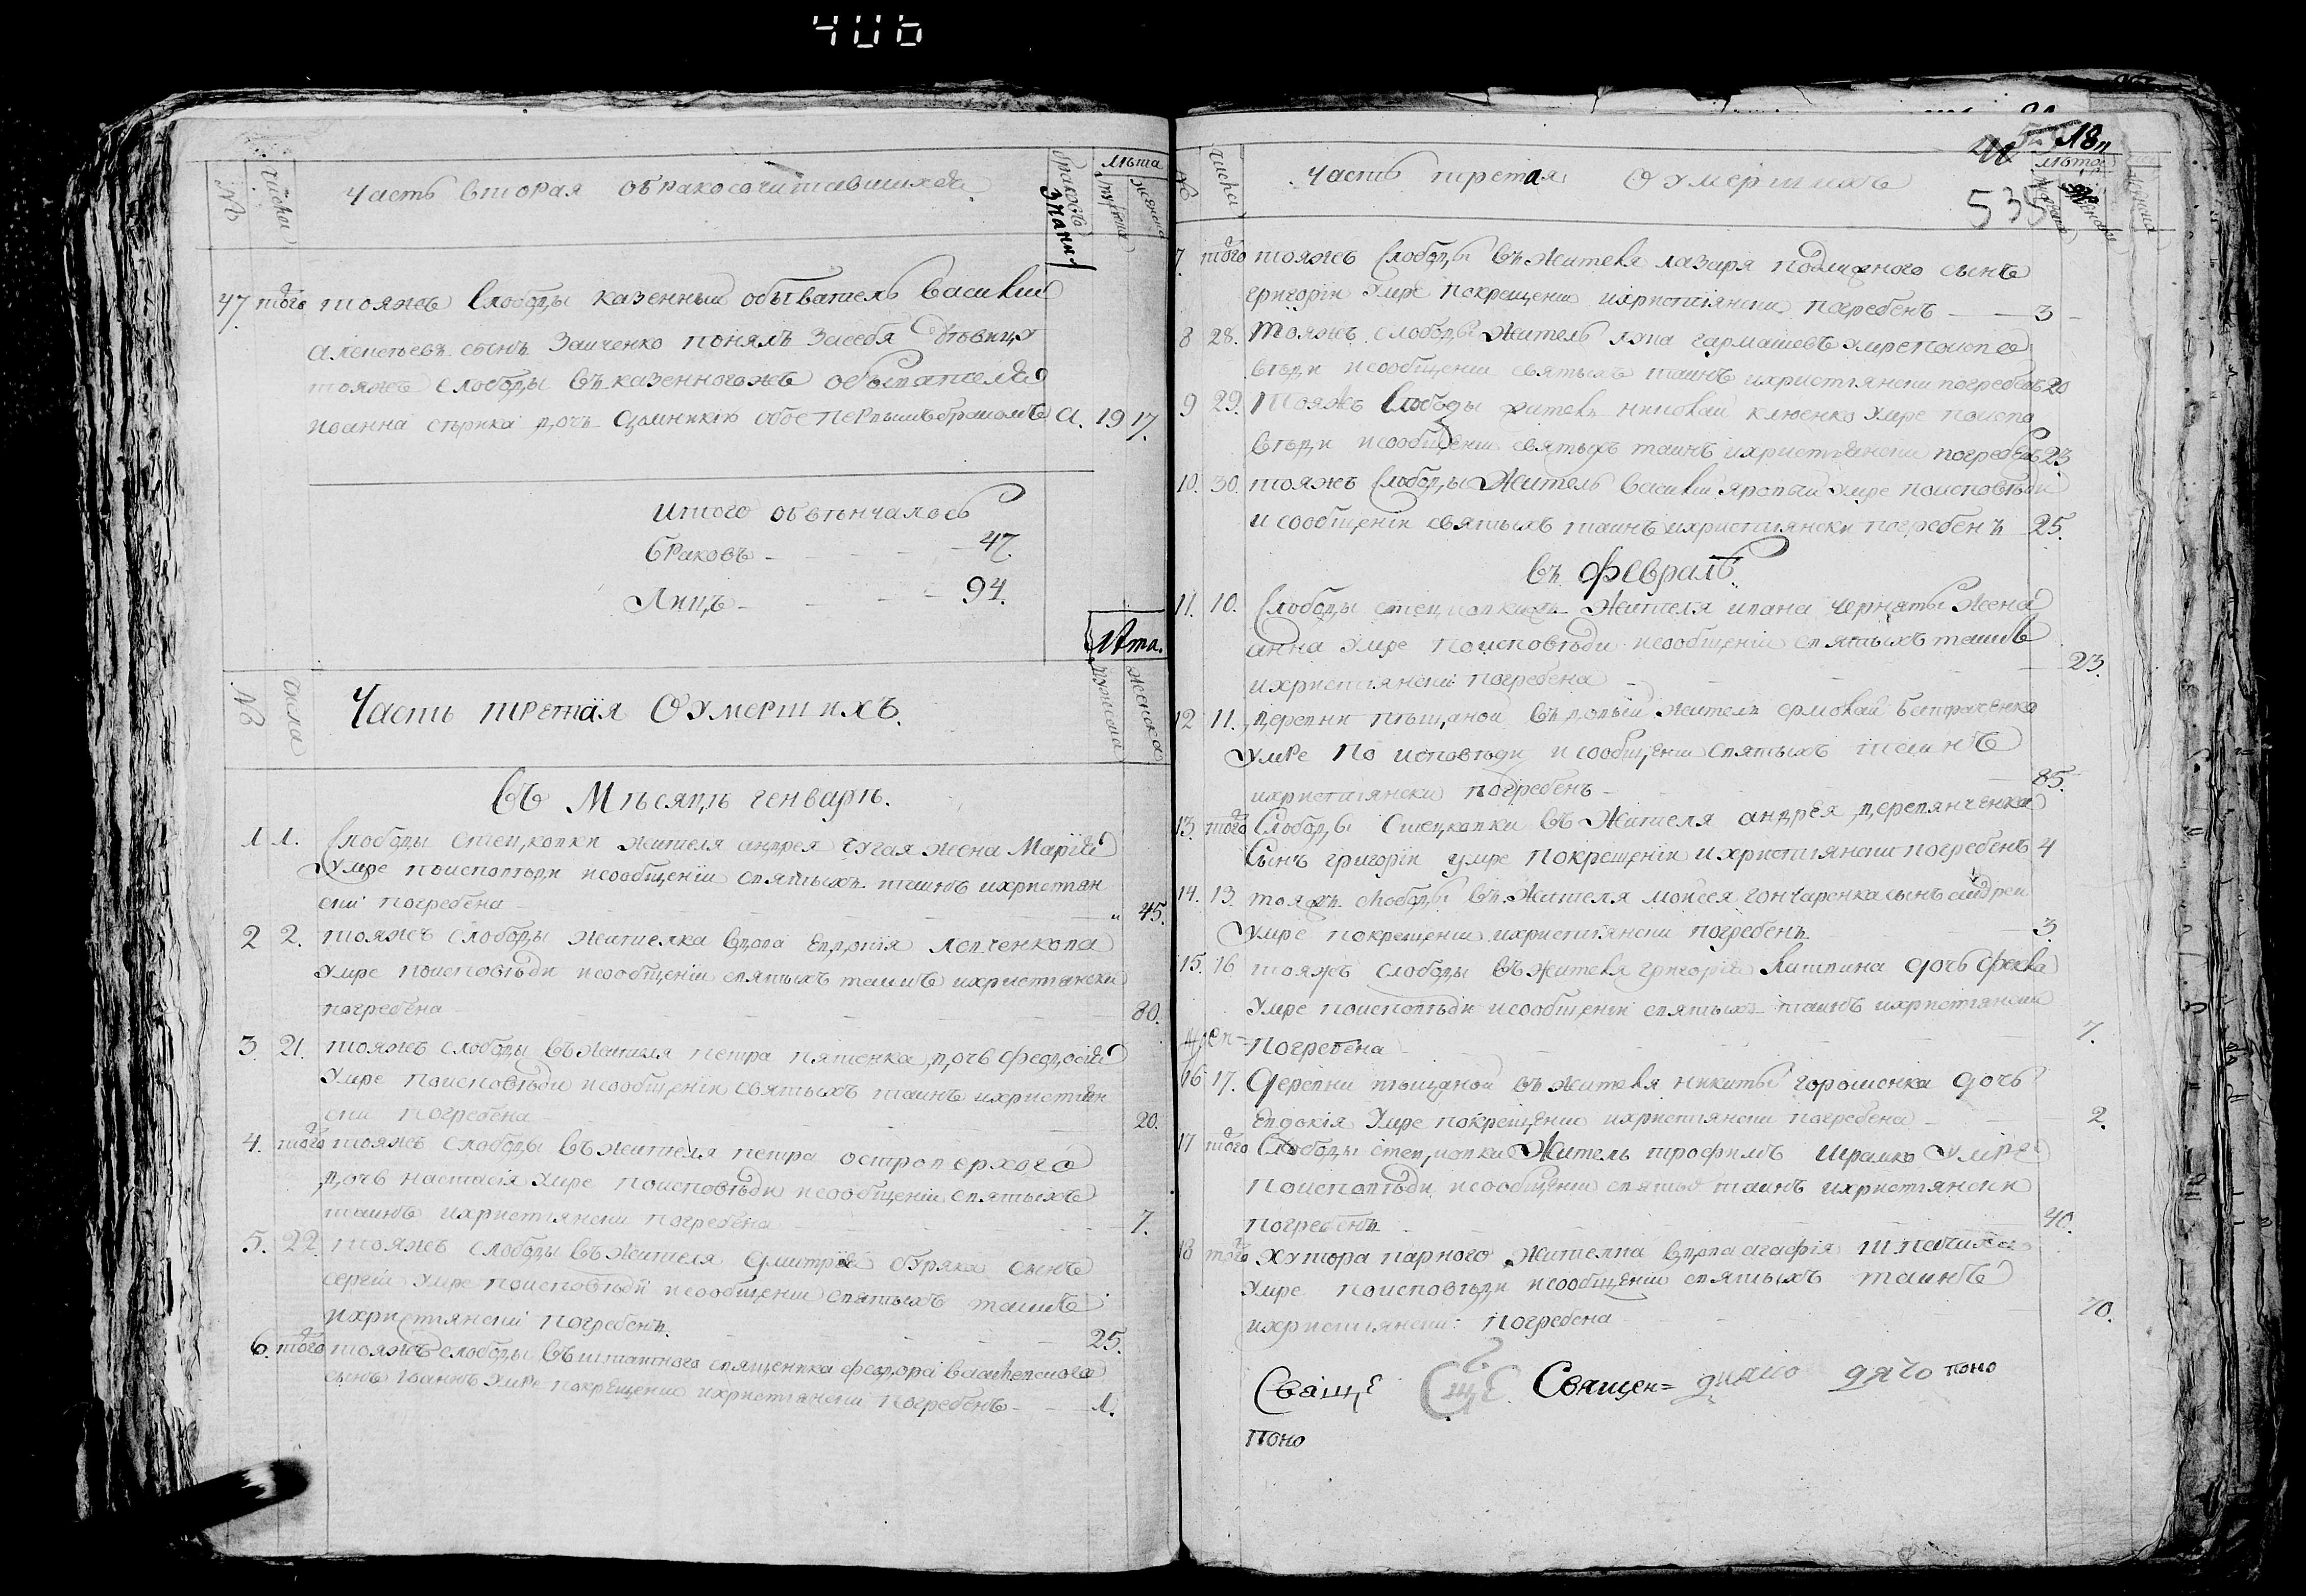 406
№
числа
Часть вторая о бракосочитавшихся
браковъ
знаки
лѣта
мужеска
женска
47
того
тояжъ слободы казенный обыватель Василий
сынъ Заиченко понялъ за себя дѣвицу
тояжъ слободы въ казенногожъ обывателя
иоанна дочь обое первымъ бракомъ а. 19 17.
итого обвѣнчалось
браковъ - 47.
Лицъ - 94.
лѣта.
№
числа
Часть третая о умершихъ.
мужеска
женска
въ Мѣсяцѣ генварѣ.
1 1. слободы Стецковки жителя андрея чугая жена Марїя
умре поисповѣди исообщенїи святыхъ таинъ ихристїян
ски погребена - 45.
2 2. тояжъ слободы жителка вдова Евдокїя
умре поисповѣди исообщенїи святыхъ таинъ ихристїянски
погребена 80.
3. 21. тояжъ слободы въ жителя петра пятенка дочь феодосїя
умре поисповѣди исообщенїи святыхъ таинъ ихристїян
ски погребена 20.
4. того тояжъ слободы въ жителя петра островерхого
дочь настасїя умре поисповѣди исообщенїи святыхъ
таинъ ихристїянски погребена 7.
5. 22. тояжъ слободы въ жителя димитрїя буряка сынъ
сергїй умре поисповѣди исообщенїи святыхъ таинъ
ихристїянски погребенъ. 25.
6. того тояжъ слободы въ штатного священика феодора
сынъ иоаннъ умре покрещенїи ихристїянски погребенъ - 1.
18
535
№
числа
Часть третая о умершихъ
лѣта
7. того тояжъ слободы въ жителя лазаря сынъ
григорїй умре покрещенїи ихристїянски погребенъ - 3
8 28. тояжъ слободы житель гармашевъ умре поиспо
вѣди исообщенїи святыхъ таинъ ихристїянски погребенъ 20
9 29. тояжъ слободы житель николай клюенко умре поиспо
вѣди исообщенїи святыхъ таинъ ихристїянски погребенъ 23
10. 30. тояжъ слободы житель василий яровый умре поисповѣди
и сообщенїи святыхъ таинъ ихристїянски погребенъ 25.
въ февралѣ.
11. 10. слободы жителя ивана черняты жена
анна умре поисповѣди исообщенїи святыхъ таинъ
ихристїянски погребена 23.
12 11. деревни пѣщаной вдовый житель ермолай батраченко
умре по исповѣди исообщенїи святыхъ таинъ
ихристїянски погребенъ - 85.
13. того слободы Стецковки въ жителя андрея деревянченка
сынъ григорїй умре покрещенїи ихристїянски погребенъ 4
14. 13. тояжъ слободы въ жителя мойсея гончаренка сынъ андрей
умре покрещенїи ихристїянски погребенъ 3.
15. 16 тояжъ слободы въ жителя григорїя литвина дочь
умре поисповѣди исообщенїи святыхъ таинъ ихристїянски
погребена 7.
16 17. деревни пѣщаной въ жителя никиты горошенка дочь
Евдокїя умре покрещенїи ихристїянски погребена 2.
17 того слободы стецковки житель трофимъ умре
поисповѣди исообщенїи святыхъ таинъ ихристїянски
погребенъ 40.
18 того хутора парного жителка вдова агафїя
умре поисповѣди исообщенїи святыхъ таинъ
ихристїянски погребена 70.
Свящ Священ=
поно